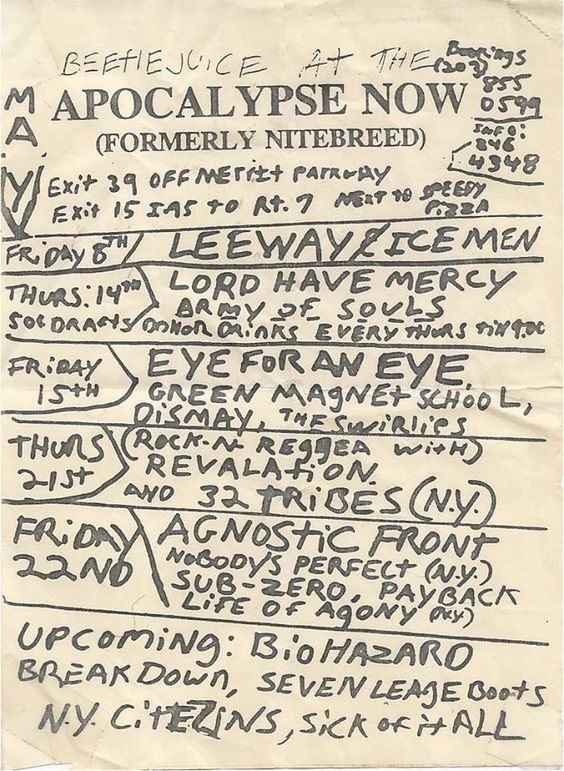 BEETLEJUICE AT THE
Bookings
(203)
855
0599
APOCALYPSE NOW
(FORMERLY NITEBREED)
INFO:
846
4348
MAY
Exit 39 OFF MERRITT PARKWAY
Exit 15 I95 to Rt. 7 NEXT TO SPEEDY PIZZA
FRIDAY 8TH LEEWAY / ICE MEN
THURS: 14TH LORD HAVE MERCY
ARMY OF SOULS
50¢ DRAFTS / DRINKS EVERY THURS
FRIDAY 15TH EYE FOR AN EYE,
GREEN MAGNET SCHOOL,
DISMAY, THE SWIRLIES
THURS 21ST (ROCK-N-REGGEA WITH)
REVALATION.
AND 32 TRIBES (N.Y.)
FRIDAY 22ND AGNOSTIC FRONT
NOBODY'S PERFECT (N.Y.)
SUB-ZERO, PAYBACK
LIFE OF AGONY (N.Y.)
UPCOMING: BIOHAZARD
BREAKDOWN, SEVEN LEAGE BOOTS
N.Y. CITEZINS, SICK OF IT ALL